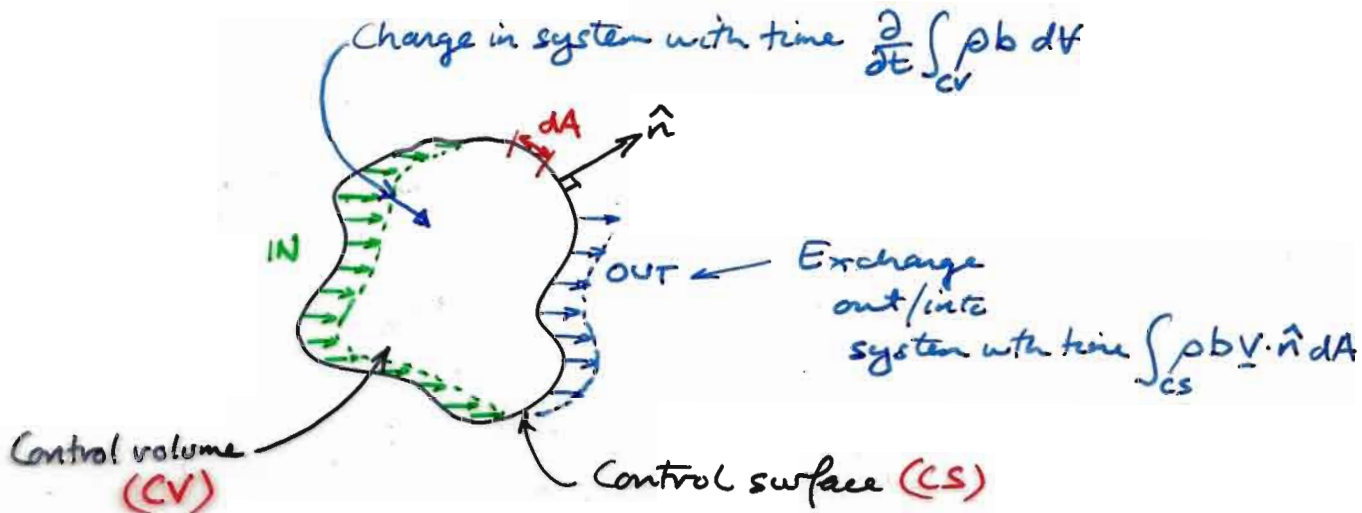 Change in system with time ∂/∂t ∫_CV ρb dV̶
dA
n̂
IN
OUT
Exchange
out/into
system with time ∫_CS ρb V̲·n̂ dA
Control volume
(CV)
Control surface (CS)